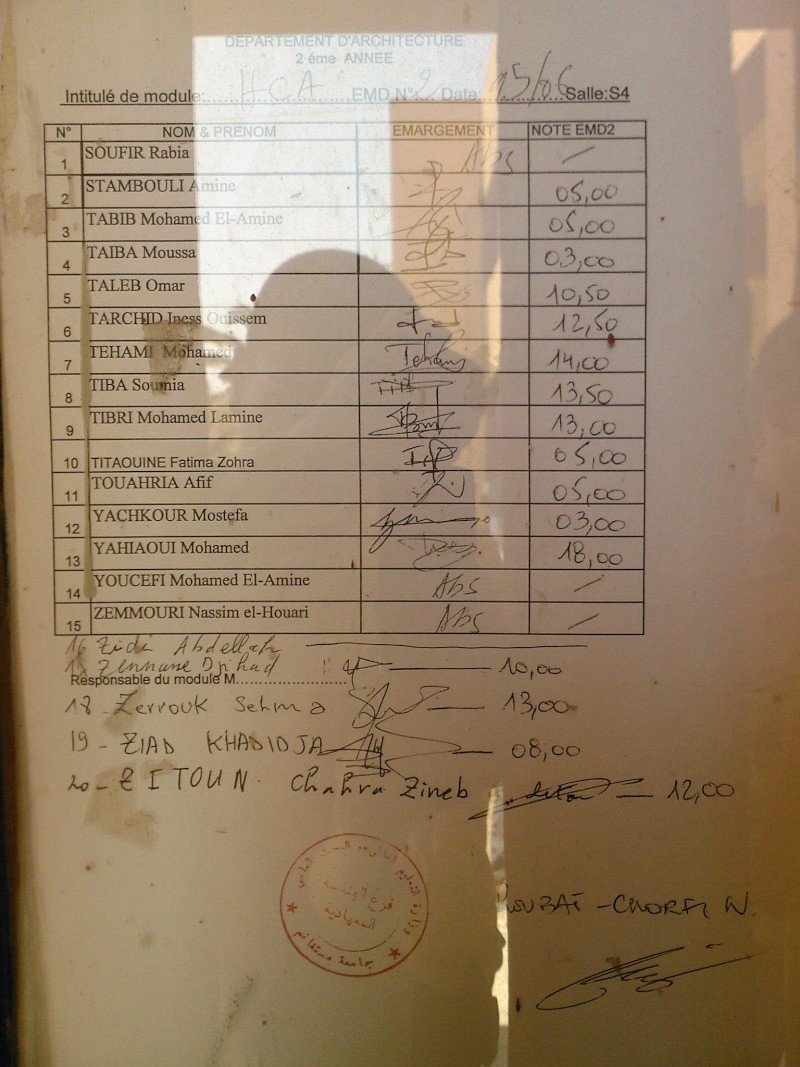 DEPARTEMENT D'ARCHITECTURE
2 éme ANNEE
Intitulé de module:.......HCA........EMD N°2 Date: 15/06 Salle:S4
N° NOM & PRENOM EMARGEMENT NOTE EMD2
1 SOUFIR Rabia Abs /
2 STAMBOULI Amine 05,00
3 TABIB Mohamed El-Amine 05,00
4 TAIBA Moussa 03,00
5 TALEB Omar 10,50
6 TARCHID Iness Ouissem 12,50
7 TEHAMI Mohamed Tehami 14,00
8 TIBA Soumia 13,50
9 TIBRI Mohamed Lamine 13,00
10 TITAOUINE Fatima Zohra 05,00
11 TOUAHRIA Afif 05,00
12 YACHKOUR Mostefa 03,00
13 YAHIAOUI Mohamed 18,00
14 YOUCEFI Mohamed El-Amine Abs /
15 ZEMMOURI Nassim el-Houari Abs /
16 Zidi Abdellah
Zennane Djihad 10,00
Responsable du module M...........................
18 - Zerrouk Selma 13,00
19 - ZIAD KHADIDJA 08,00
20 - ZITOUN Chahra Zineb 12,00